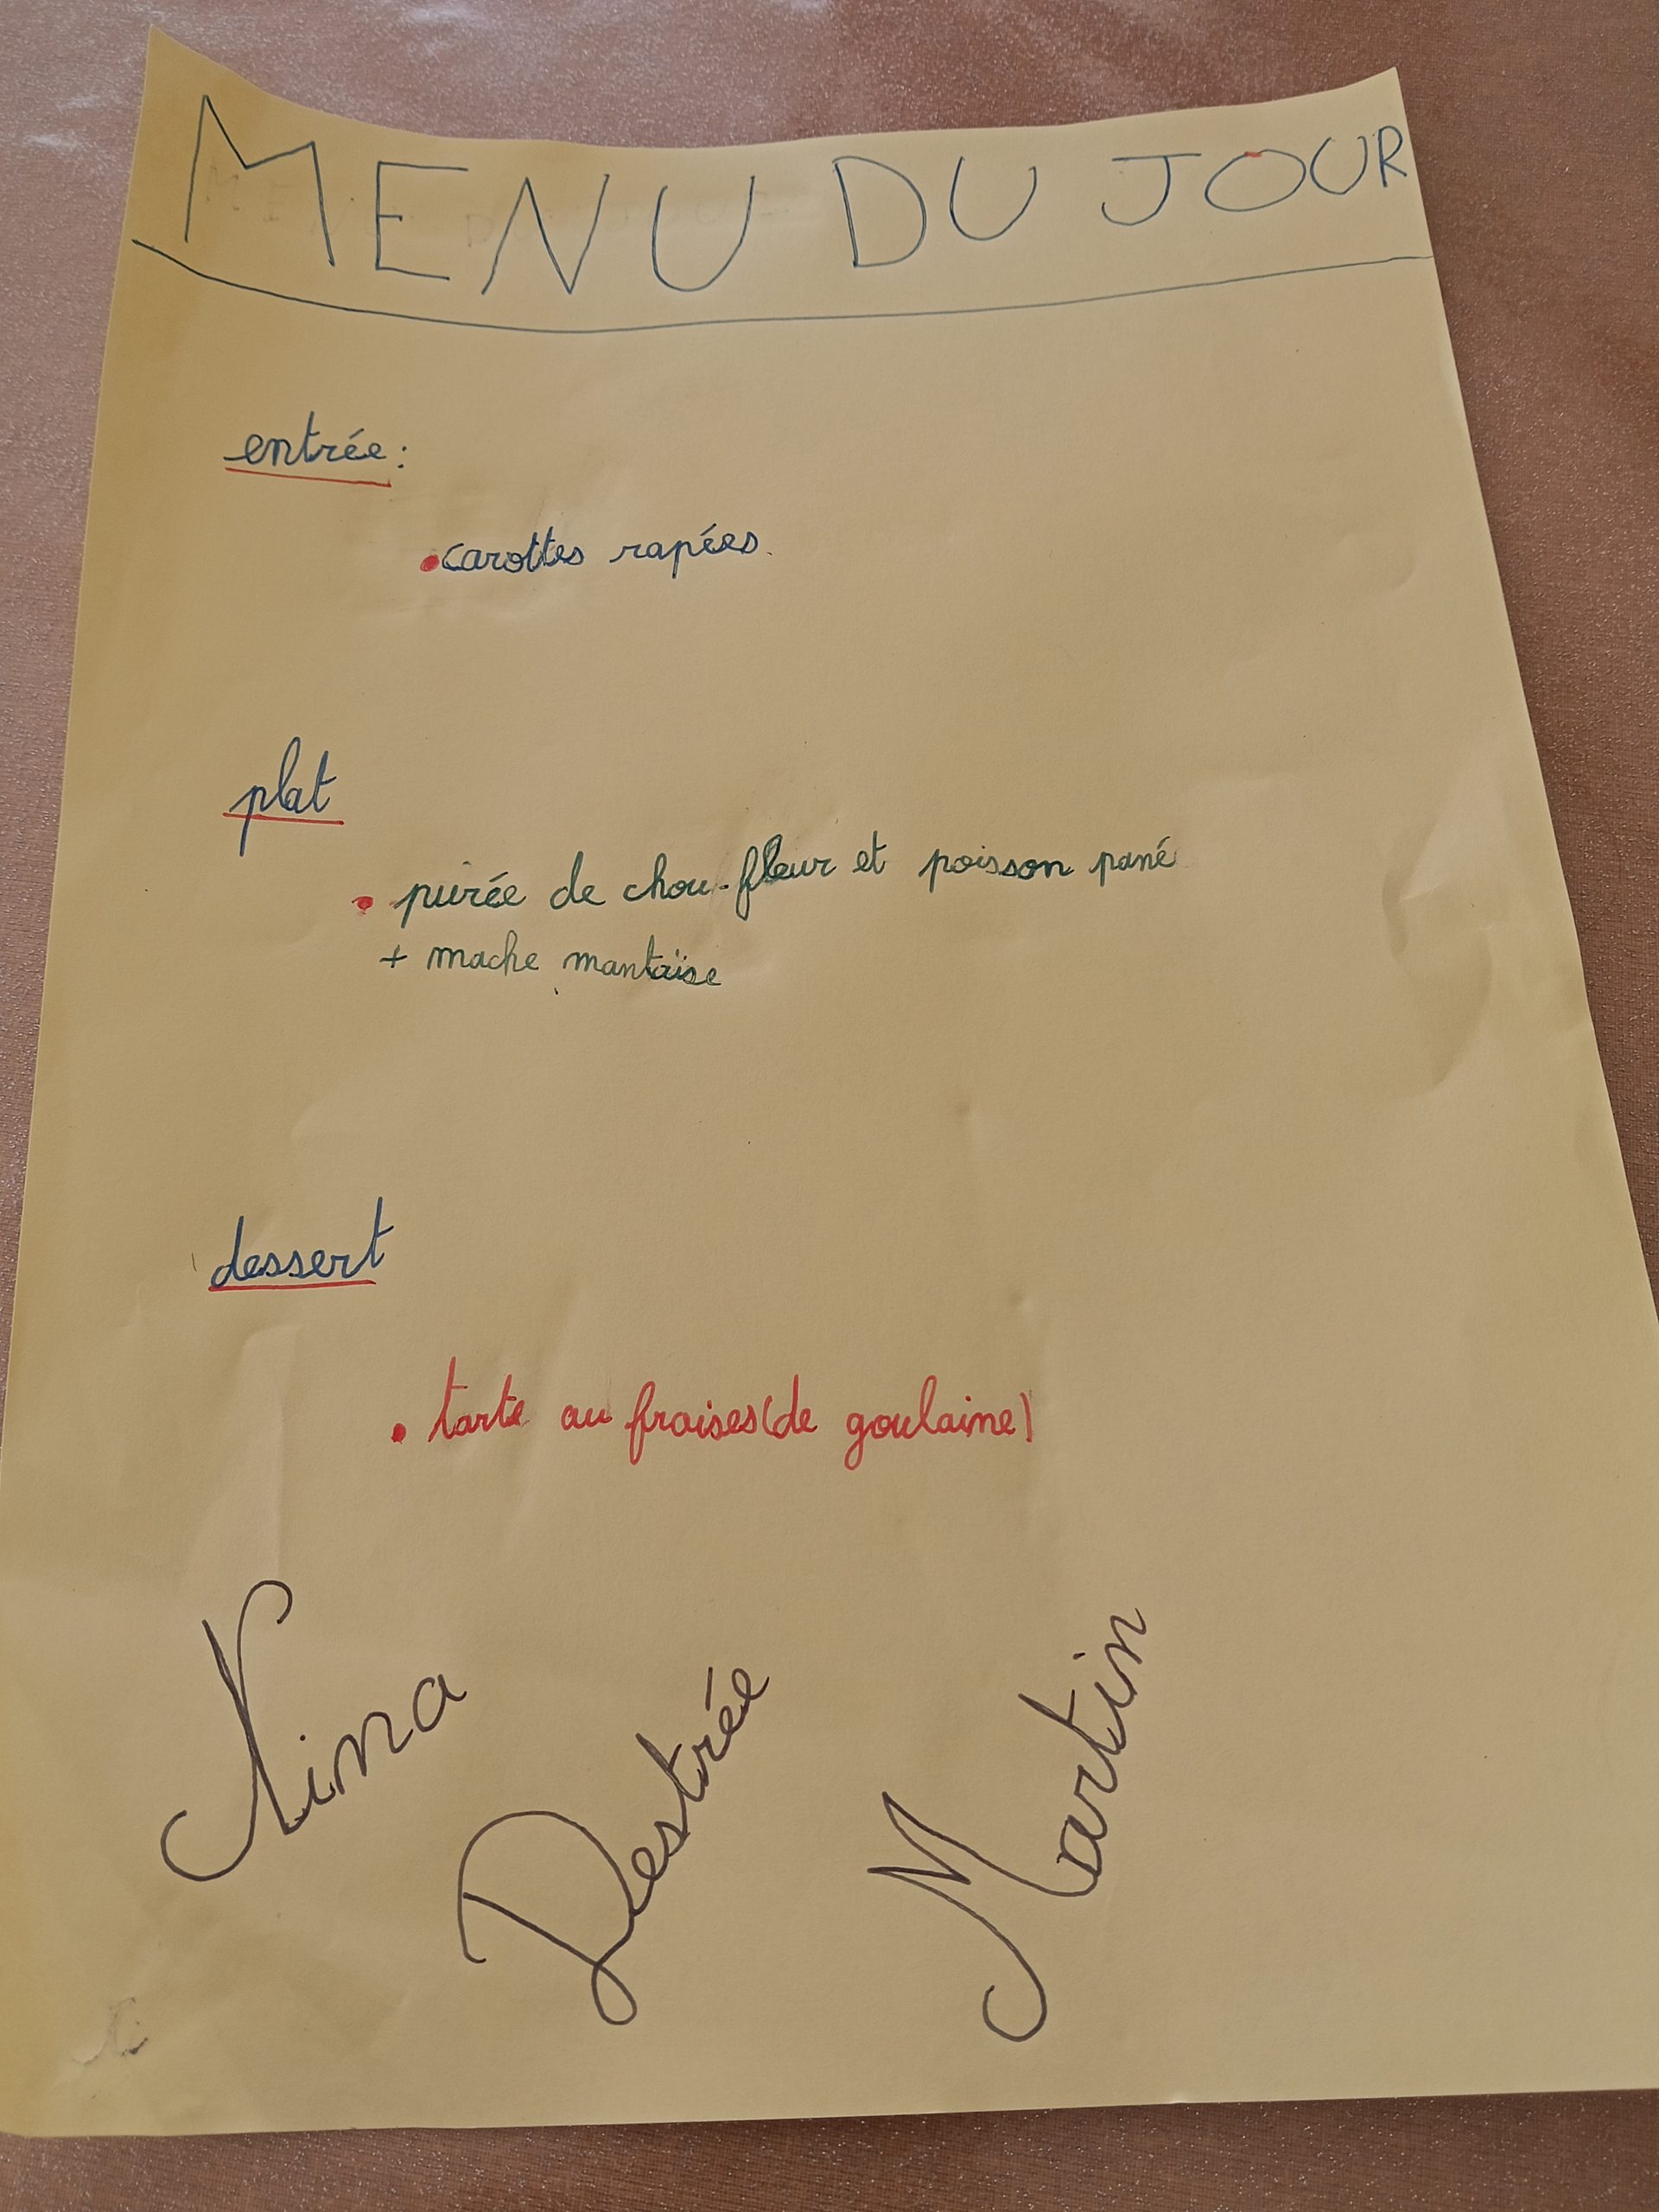 MENU DU JOUR
entrée:
• carottes rapées.
plat
• purée de chou-fleur et poisson pané
+ mache mantaïse
dessert
• tarte au fraises (de goulaine)
Nina
Destrée
Martin